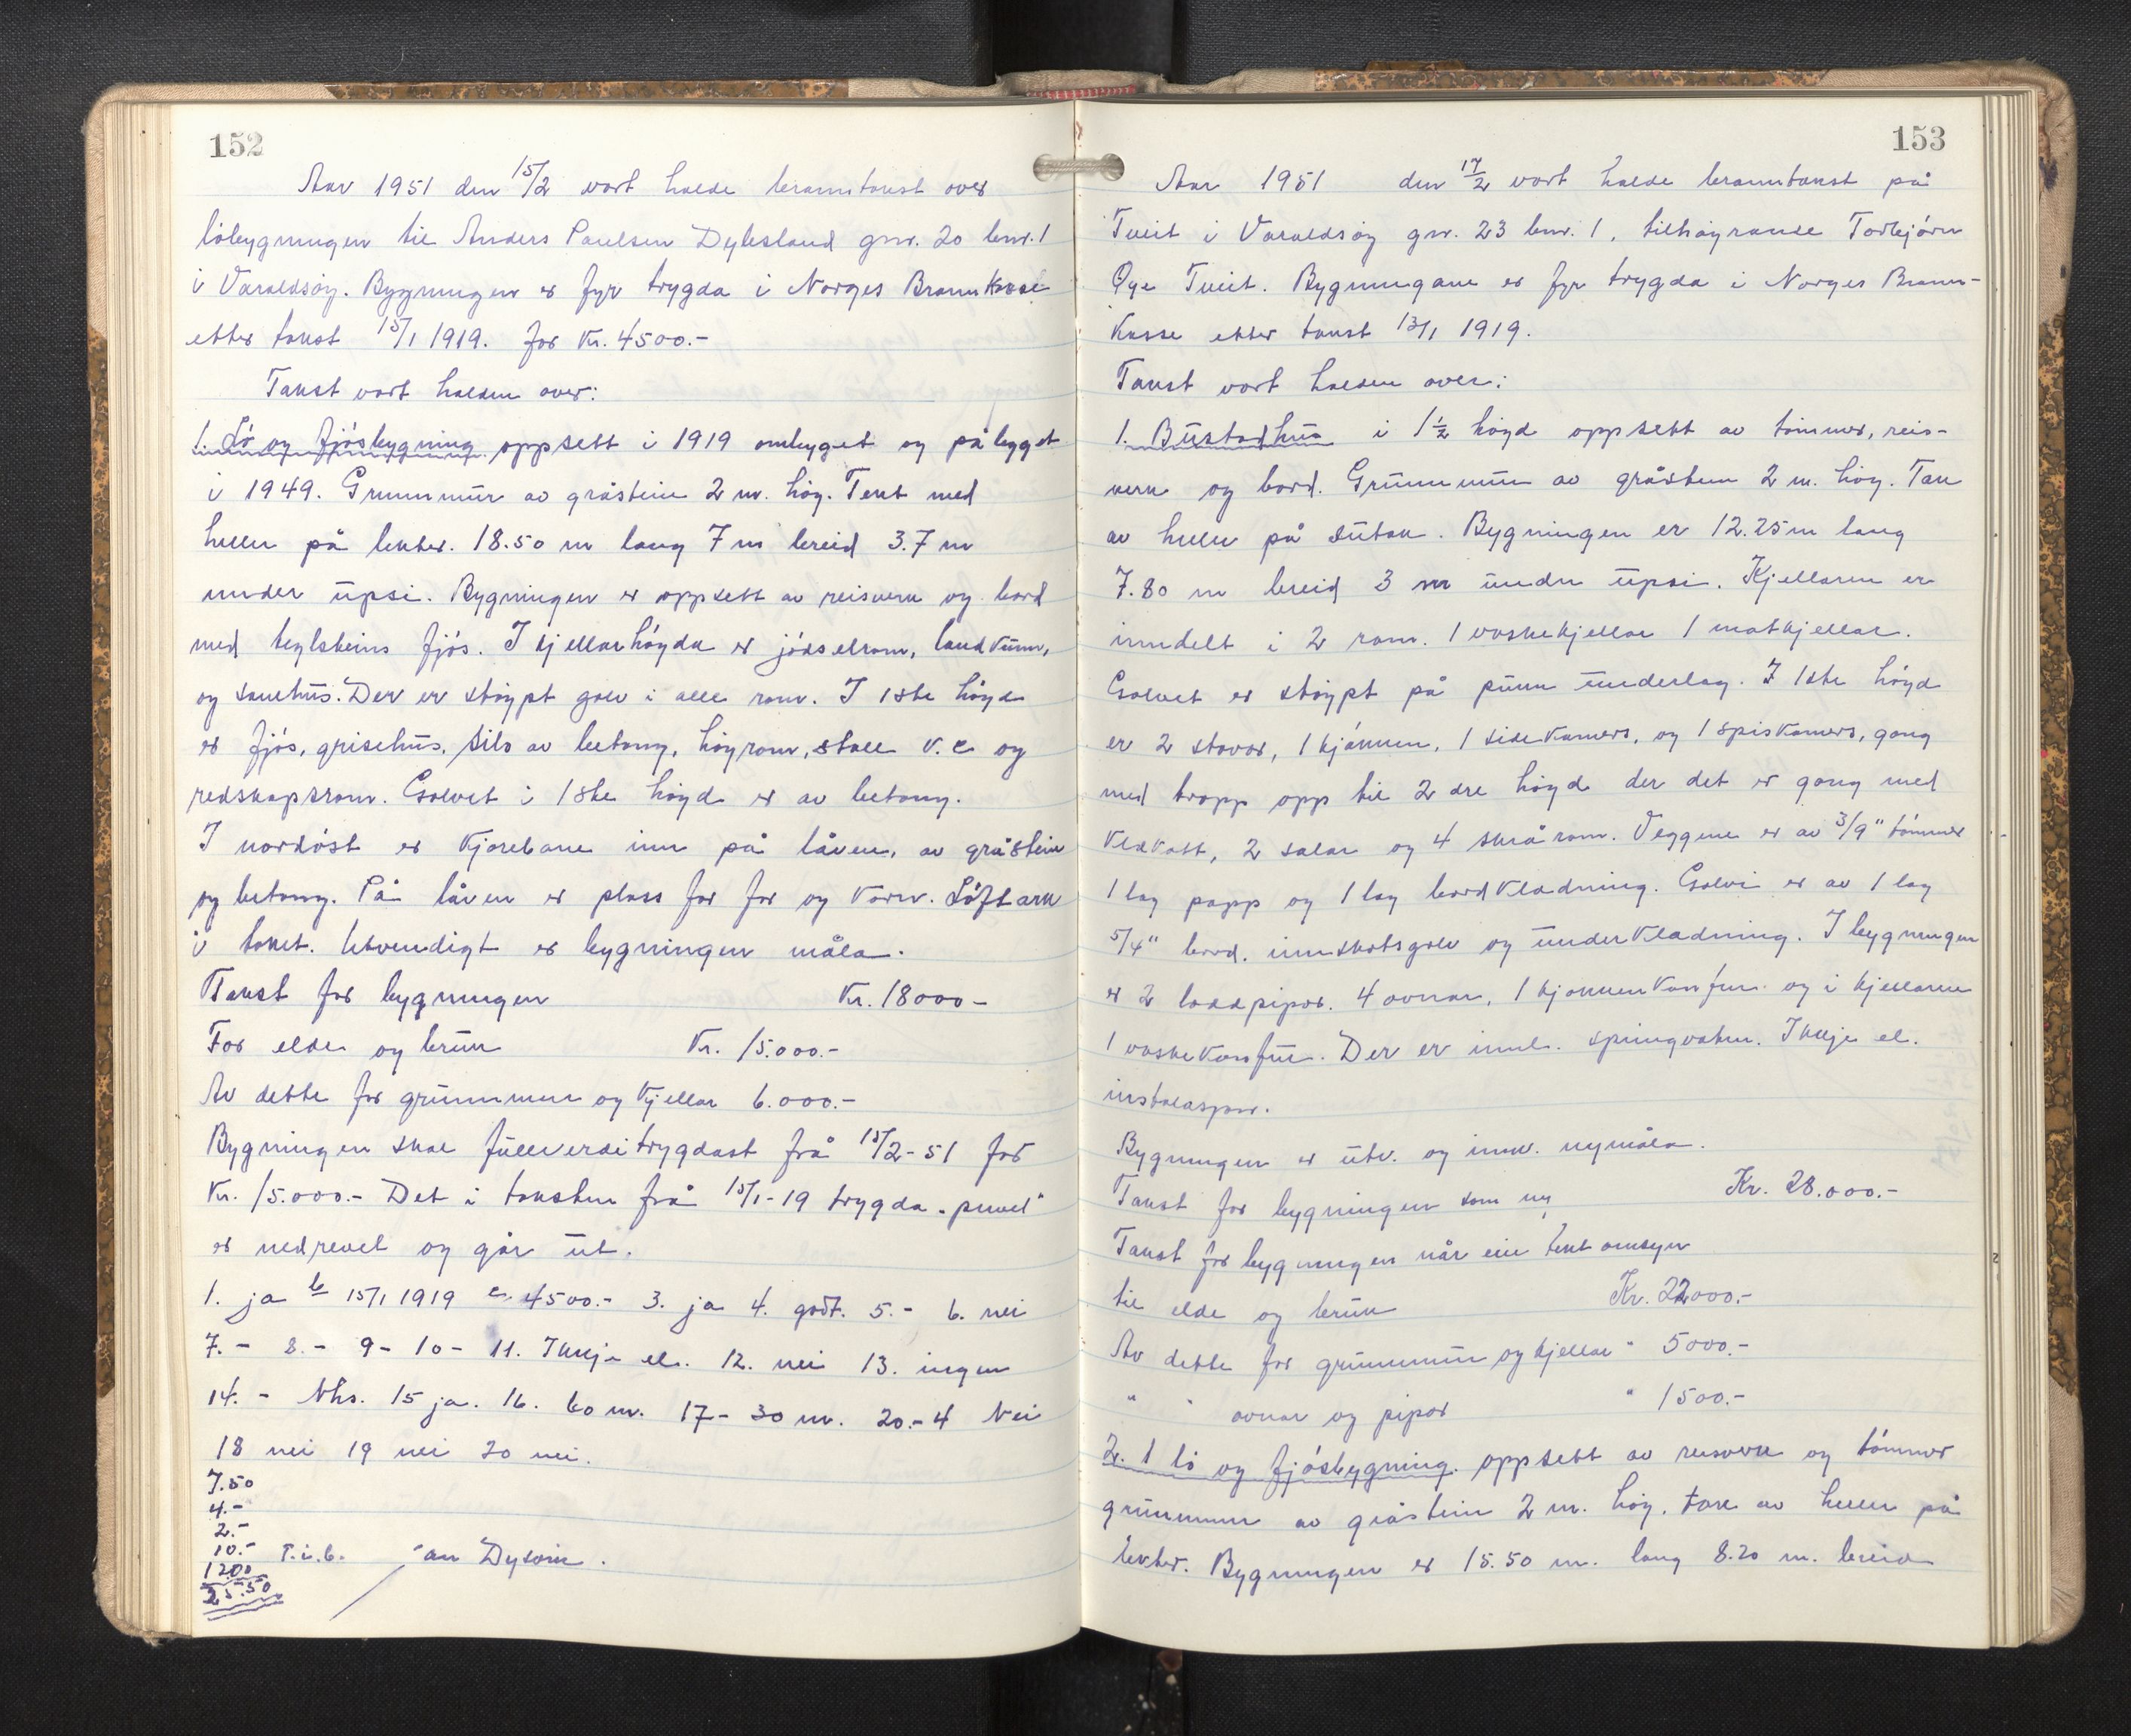 152
Aar 1951 den 15/2 vart halde branntakst over
löbygningen til Anders Paulsen Dybsland gnr. 20 bnr. 1
i Varaldsöy. Bygningen er fyr trygda i Norges Brannkasse
etter takst 15/1 1919. for Kr. 4500.-
Takst vart halden over:
1. Lö og fjösbygning oppsett i 1919 ombyget og påbygget
i 1949. Grunnmür av gråstein 2 m. høg. Tekt med
heller på lekter. 18.50 m lang 7 m breid 3.7 m
under üpsi. Bygningen er oppsett av reisverk og bord
med teglsteins fjös. I kjellarhögda er jödselrom, landkum,
og sauehüs. Der er støypt golv i alle rom. I 1ste högd
er fjös, grisehüs, silo av betong, höyrom, stall v. c og
redskapsrom. Golvet i 1ste høgd er av betong.
I nordöst er kjørebane inn på låven, av gråstein
og betong. På låven er plass for for og korn. Löftark
i taket. Utvendigt er bygningen måla.
Takst for bygningen Kr. 18000-
For elde og brük Kr. 15.000.-
Av dette for grünnmur og kjellar 6.000.-
Bygningen skal füllverditrygdast frå 15/2-51 for
Kr. 15.000.- Det i taksten frå 15/1-19 trygda
er nedrevet og går üt.
1. ja b 15/1 1919 c. 4500.- 3. ja 4. godt. 5.- 6. nei
7.- 8.- 9- 10- 11. Ikkje el. 12. nei 13. ingen
14. - Nhs. 15 ja. 16. 60 m. 17- 30 m. 20.-4 Nei
18 nei 19 nei 20 nei.
7.50
4.-
2.-
10.- T.i.b.
12.00
25.50
153
Aar 1951 den 17/2 vart halde branntakst på
Tveit i Varaldsöy gnr. 23 bnr. 1, tilhøyrande Torbjörn
Øye Tveit. Bygningane er fyr trygda i Norges Brann-
kasse etter takst 13/1 1919.
Takst vart halden over:
1. Büstadhüs i 1 1/2 högd oppsett av tömmer, reis-
verk og bord. Grünnmür av gråstein 2 m. høg. Tak
av heller på sütak. Bygningen er 12.25 m lang
7.80 m breid 3 m ünder üpsi. Kjellaren er
inndelt i 2 rom. 1 vaskekjellar 1 matkjellar.
Golvet er støypt på pukk ünderlag. I 1ste högd
er 2 stover, 1 kjökken, 1 sidekamers, og 1 spiskamers, gang
med tropp opp til 2dre högd der det er gang med
kledkott, 2 salar og 4 skrårom. Veggene er av 3/9" tömmer
1 lag papp og 1 lag bordkledning. Golvi er av 1 lag
5/4" bord. innskotsgolv og ünderkledning. I bygningen
er 2 loddpipor. 4 ovnar, 1 kjøkkenkomfür og i kjellaren
1 vaskekomfür. Der er innl. springvatn. Ikkje el.
instalasjon.
Bygningen er ütv. og innv. nymåla.
Takst for bygningen som ny Kr. 28.000.-
Takst for bygningen når ein tek omsyn
til elde og brük Kr. 22000.-
Av dette for grünnmür og kjellar " 5000.-
" " ovnar og pipor " 1500.-
2. 1 lö og fjösbygning. oppsett av reisverk og tömmer
grünnmur av gråstein 2 m. høg. tak av heller på
lekter. Bygningen er 15.50 m. lang 8.20 m. breid